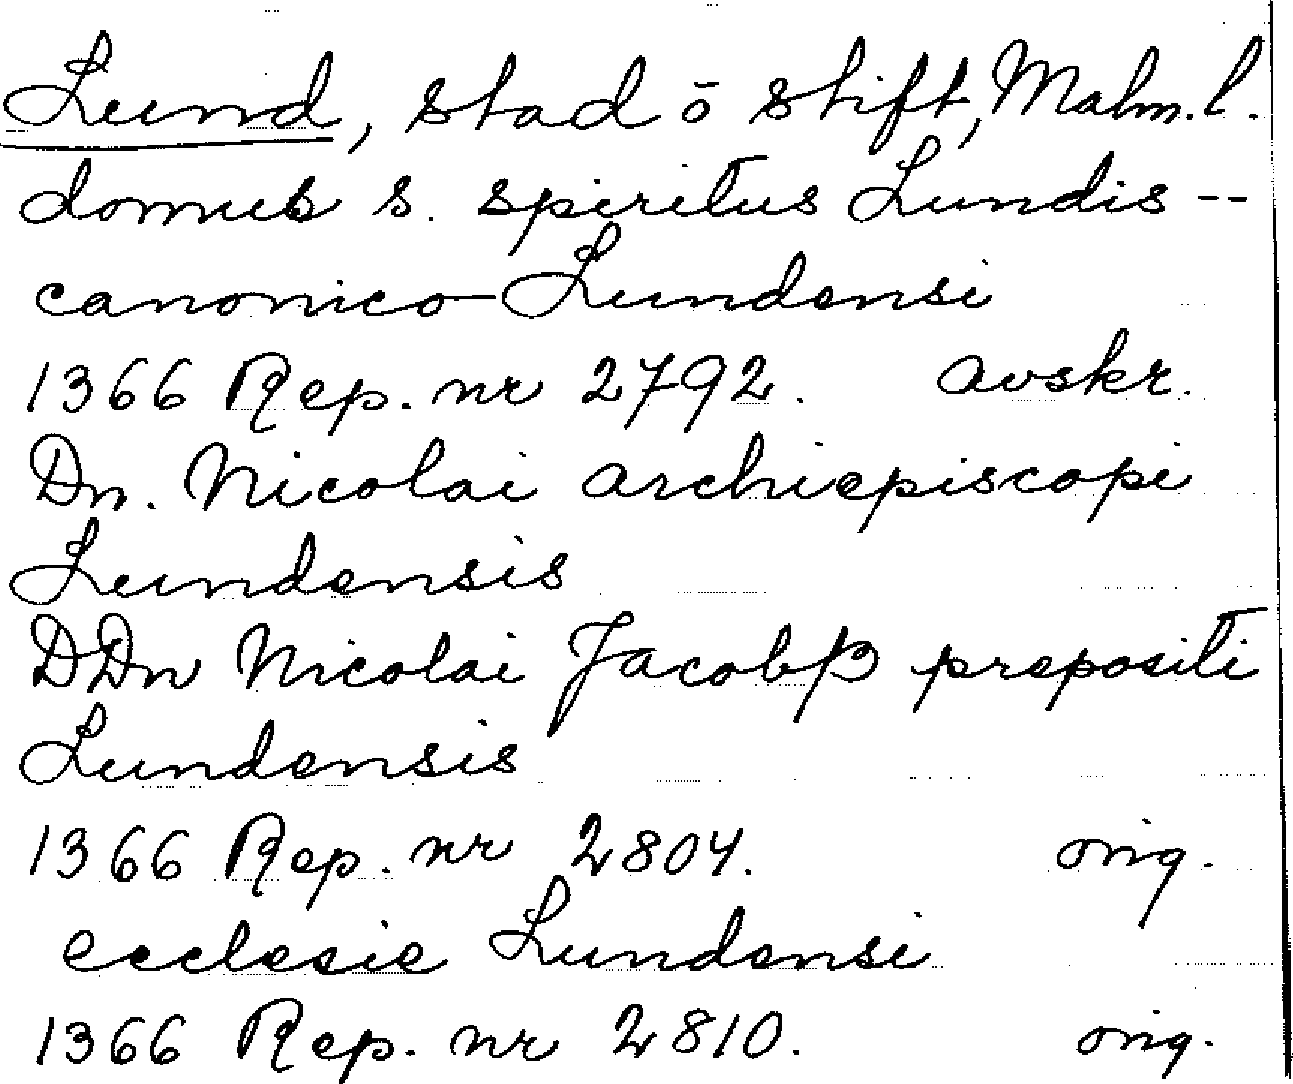 Lund, stad o stift, Malm. l.
domus s. spiritus Lundis --
canonico Lundensi
1366 Rep. nr 2792. avskr.
Dn. Nicolai archiepiscopi
Lundensis
DDn Nicolai Jacobβ prepositi
Lundensis
1366 Rep. nr 2804. orig.
ecclesie Lundensi
1366 Rep. nr 2810. orig.